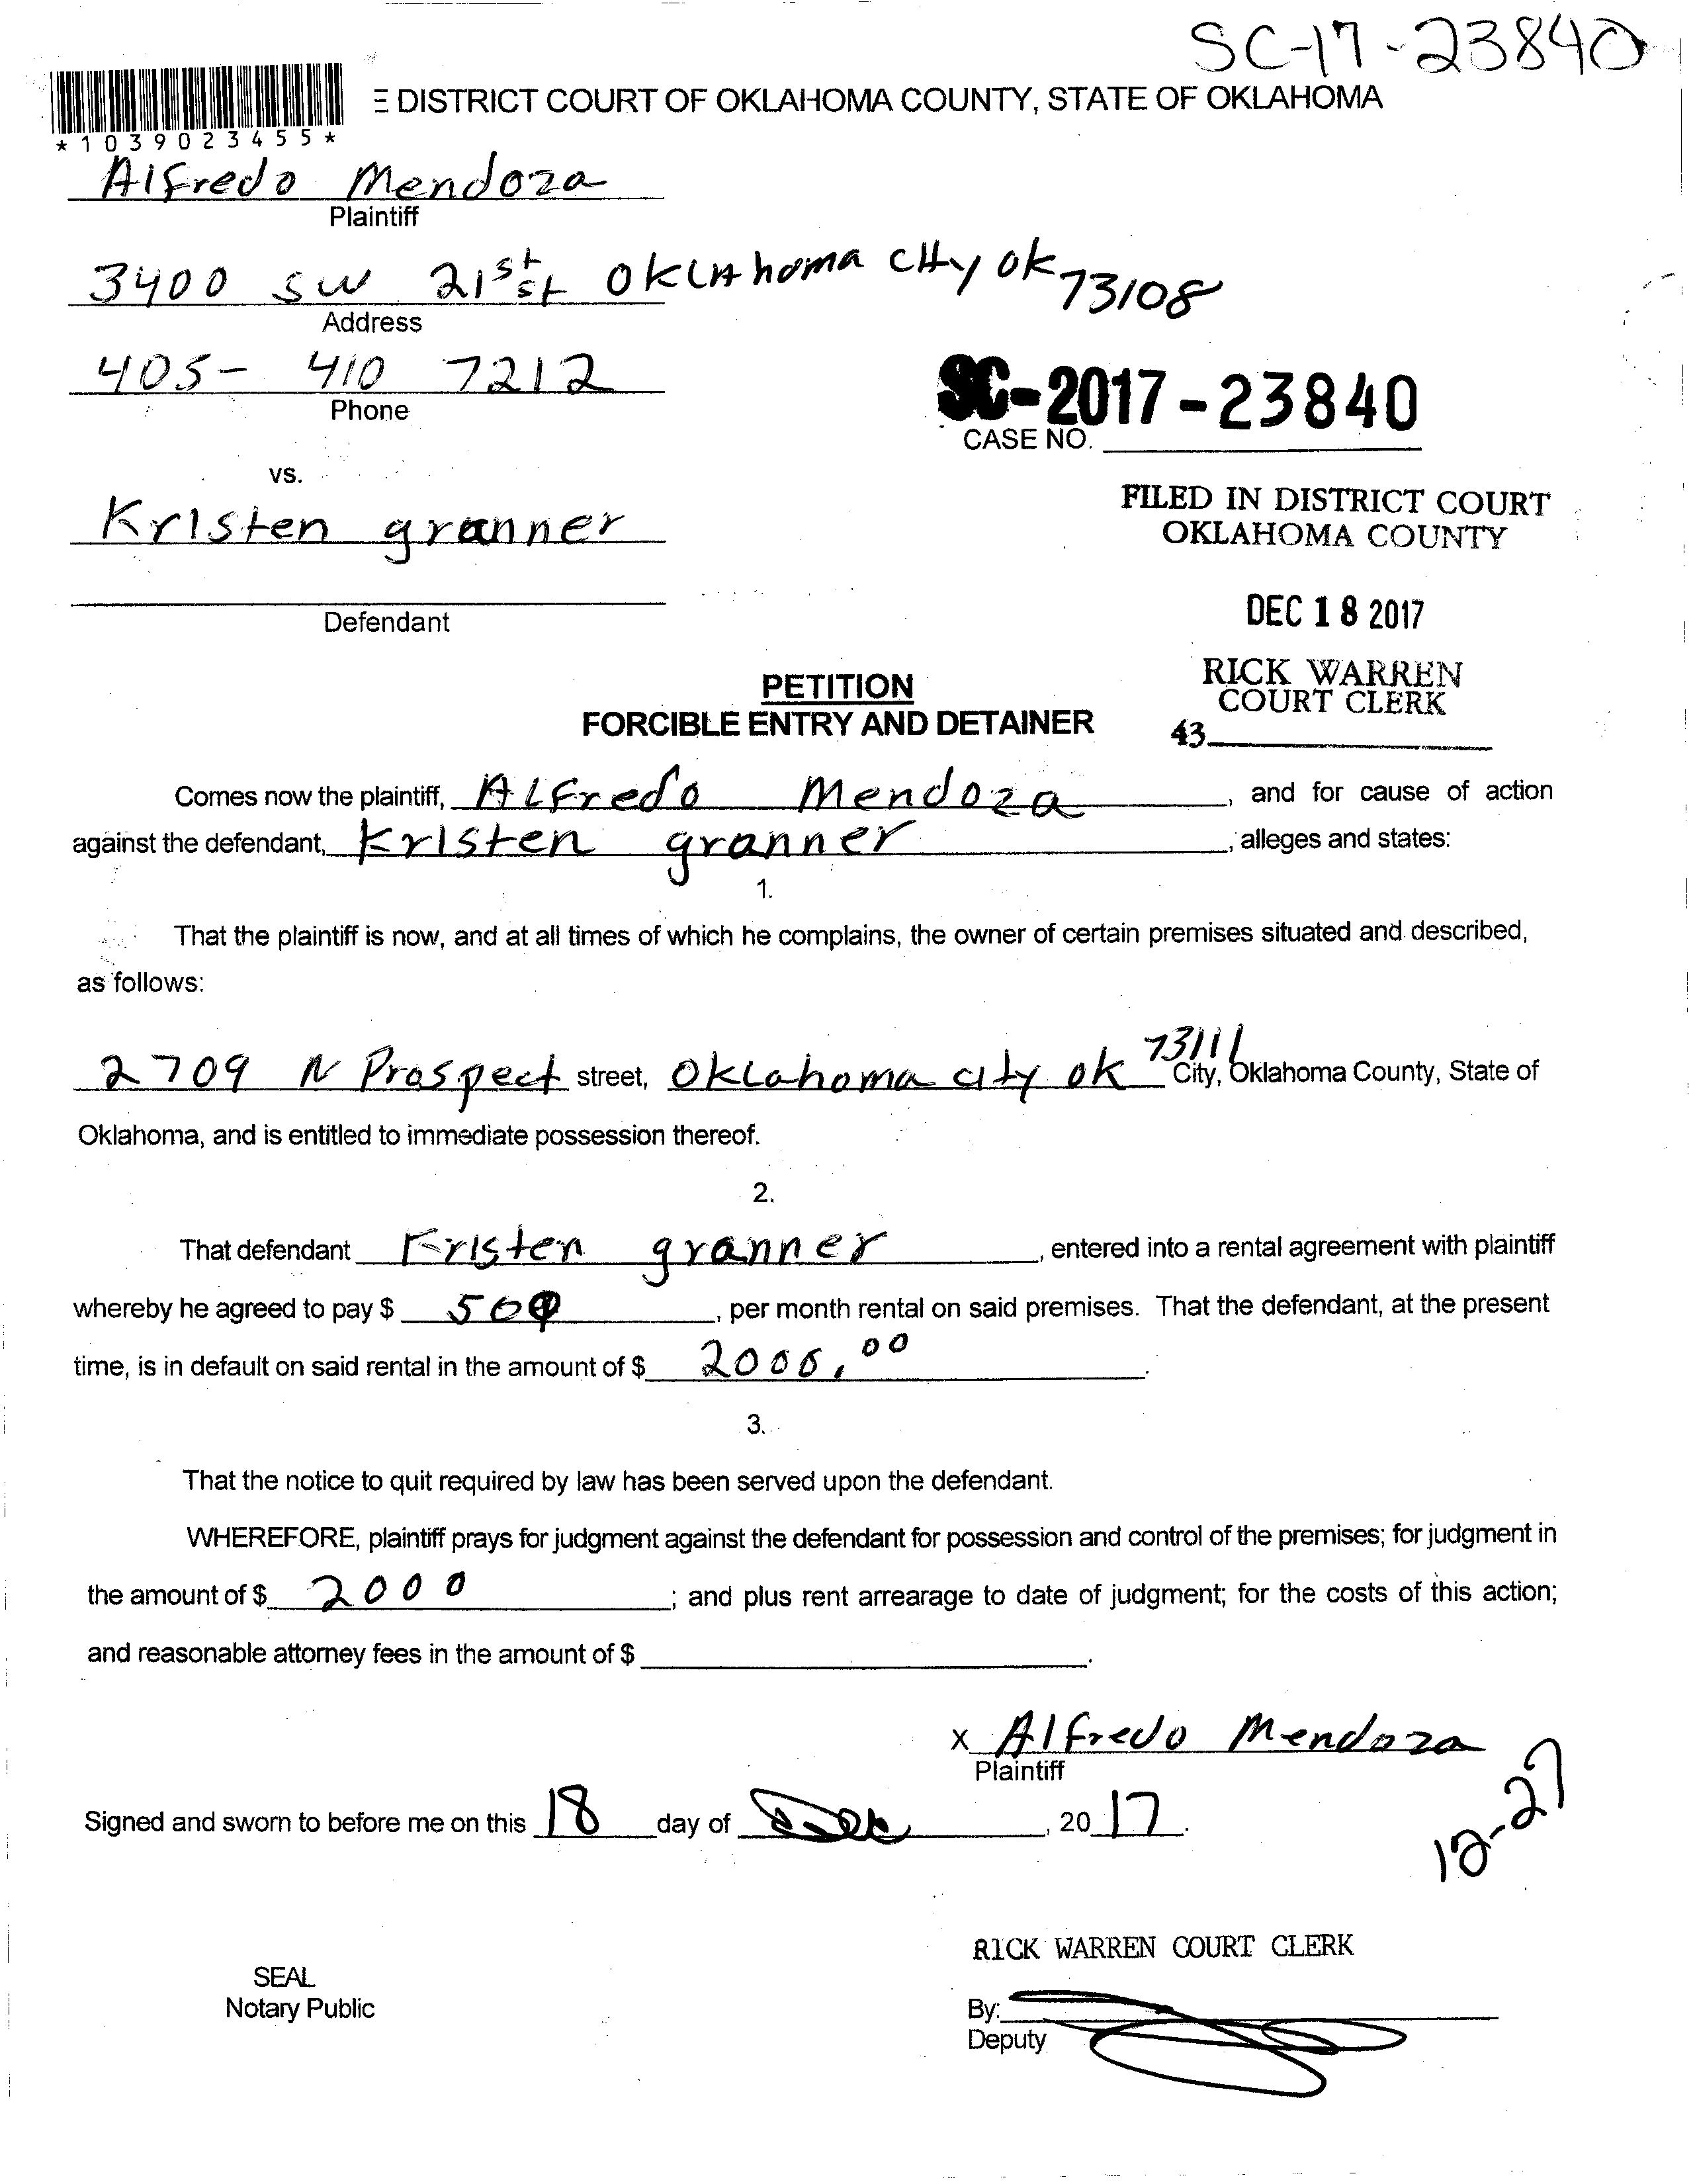 SC-17-23840
E DISTRICT COURT OF OKLAHOMA COUNTY, STATE OF OKLAHOMA
*1039023455*
Alfredo Mendoza
Plaintiff
3400 SW 21st st Oklahoma city ok 73108
Address
405- 410 7212
Phone
SC-2017-23840
CASE NO.
vs.
Kristen granner
Defendant
FILED IN DISTRICT COURT
OKLAHOMA COUNTY
DEC 18 2017
RICK WARREN
COURT CLERK
43
PETITION
FORCIBLE ENTRY AND DETAINER
Comes now the plaintiff, ALFredo Mendoza, and for cause of action
against the defendant, Kristen granner, alleges and states:
1.
That the plaintiff is now, and at all times of which he complains, the owner of certain premises situated and described,
as follows:
2709 N Prospect street, Oklahoma city ok 73111 City, Oklahoma County, State of
Oklahoma, and is entitled to immediate possession thereof.
2.
That defendant Kristen granner, entered into a rental agreement with plaintiff
whereby he agreed to pay $ 500, per month rental on said premises. That the defendant, at the present
time, is in default on said rental in the amount of $ 2000,00.
3.
That the notice to quit required by law has been served upon the defendant.
WHEREFORE, plaintiff prays for judgment against the defendant for possession and control of the premises; for judgment in
the amount of $ 2000; and plus rent arrearage to date of judgment; for the costs of this action;
and reasonable attorney fees in the amount of $ .
X Alfredo Mendoza
Plaintiff
Signed and sworn to before me on this 18 day of Dec, 2017.
12-27
RICK WARREN COURT CLERK
SEAL
Notary Public
By:
Deputy